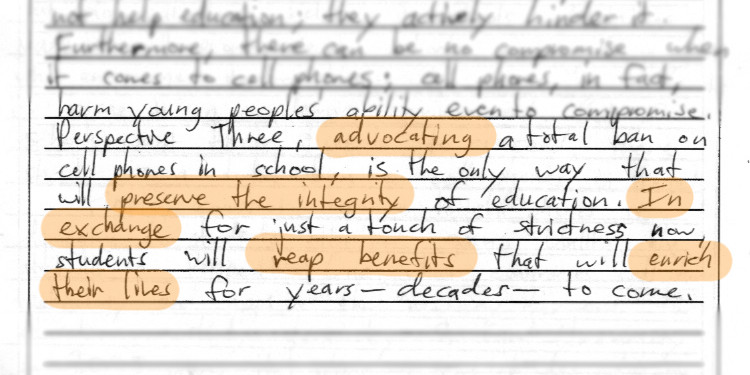 not help education; they actively hinder it.
Furthermore, there can be no compromise when
it comes to cell phones; cell phones, in fact,
harm young peoples' ability even to compromise.
Perspective Three, advocating a total ban on
cell phones in school, is the only way that
will preserve the integrity of education. In
exchange for just a touch of strictness now,
students will reap benefits that will enrich
their lives for years—decades—to come.